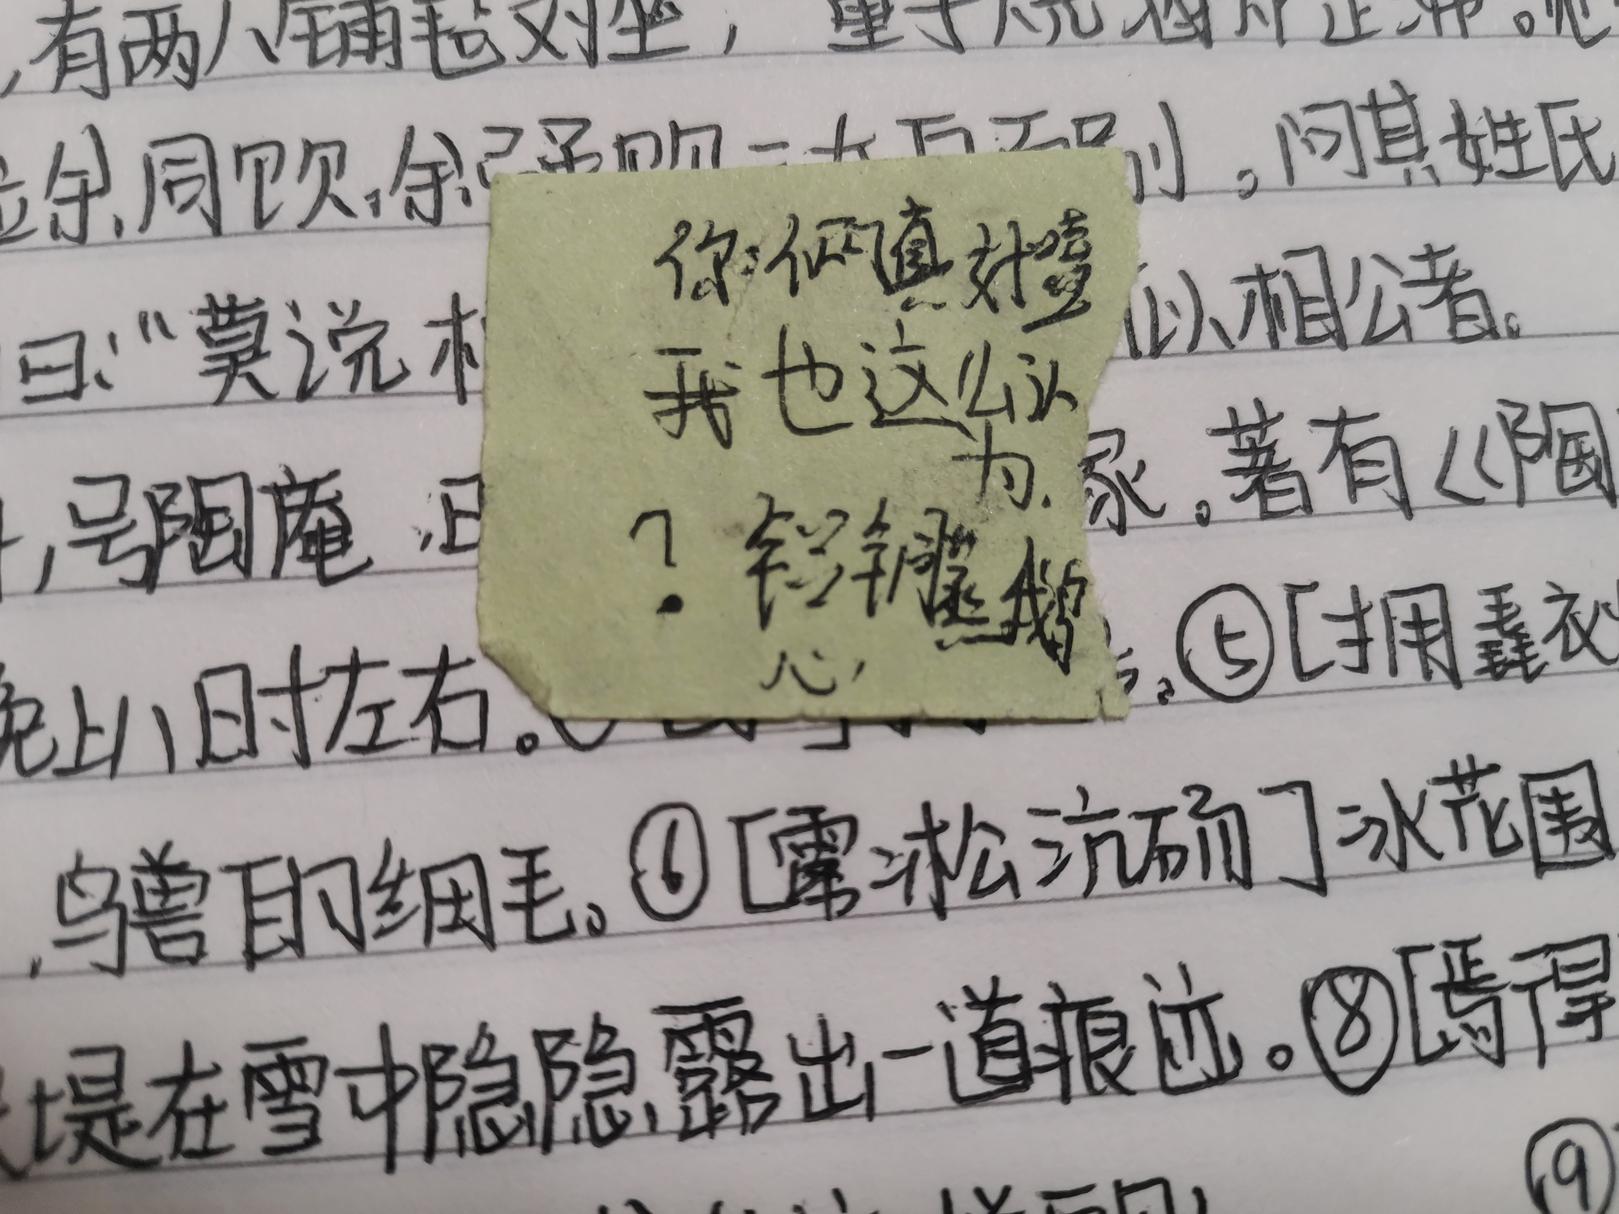 ,有两人铺毡对坐,一童子烧酒炉正沸。见
余同饮,余强饮三大白而别。问其姓氏
曰:“莫说相
似相公者。
你俩真对
我也这么认
为.
?
心,
,号陶庵,
家。著有《陶
晚上八时左右。
⑤[拥毳衣
,鸟兽的细毛。⑥[雾凇沆砀]冰花围
堤在雪中隐隐露出一道痕迹。⑧[焉得
⑨